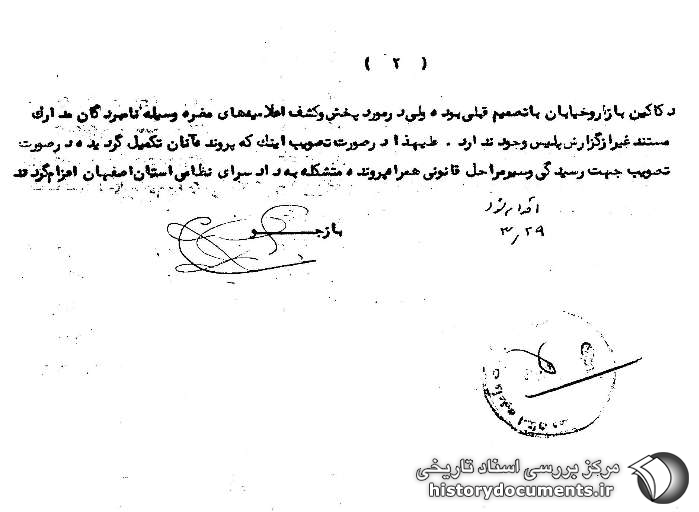 ( ۲ )
دکاکین بازار و خیابان با تصمیم قبلی بوده ولی در مورد پخش و کشف اعلامیه‌های مضره وسیله نامبردگان مدارک
مستند غیر از گزارش پلیس وجود ندارد . علیهذا در صورت تصویب اینک که پرونده آنان تکمیل گردیده در صورت
تصویب جهت رسیدگی و سیر مراحل قانونی همراه پرونده متشکله به دادسرای نظامی استان اصفهان اعزام گردند
اقدام شود
۳/۲۹
بازجو
مرکز بررسی اسناد تاریخی
historydocuments.ir